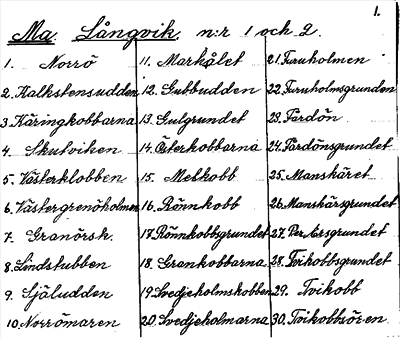 1.
Ma Långvik n:r 1 och 2.
1. Norrö
2. Kalkstensudden
3. Käringkobbarna
4. Skutviken
5. Västerklobben
6. Västergrenöholmen
7. Granörsk.
8. Lindstubben
9. Själudden
10. Norrömaren
11. Markålet
12. Gubbudden
13. Gulgrundet
14. Österkobbarna
15. Melkobb
16. Rönnkobb
17. Rönnkobbsgrundet
18. Grankobbarna
19. Svedjeholmskobben
20. Svedjeholmarna
21. Furuholmen
22. Furuholmsgrunden
23. Färdön
24. Färdönsgrundet
25. Manskäret
26. Manskärsgrunden
27. Per Ersgrundet
28. Tvikobbsgrundet
29. Tvikobb
30. Tvikobbsören